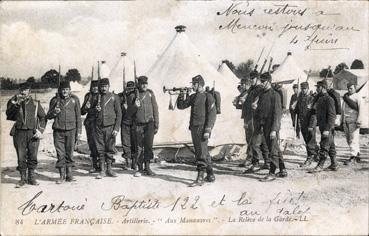 Nous restons à
jusqu'au
4 juin
Baptiste 122 et la
au
84 L'ARMÉE FRANÇAISE. - Artillerie. - "Aux Manœuvres" - La Relève de la Garde. - LL